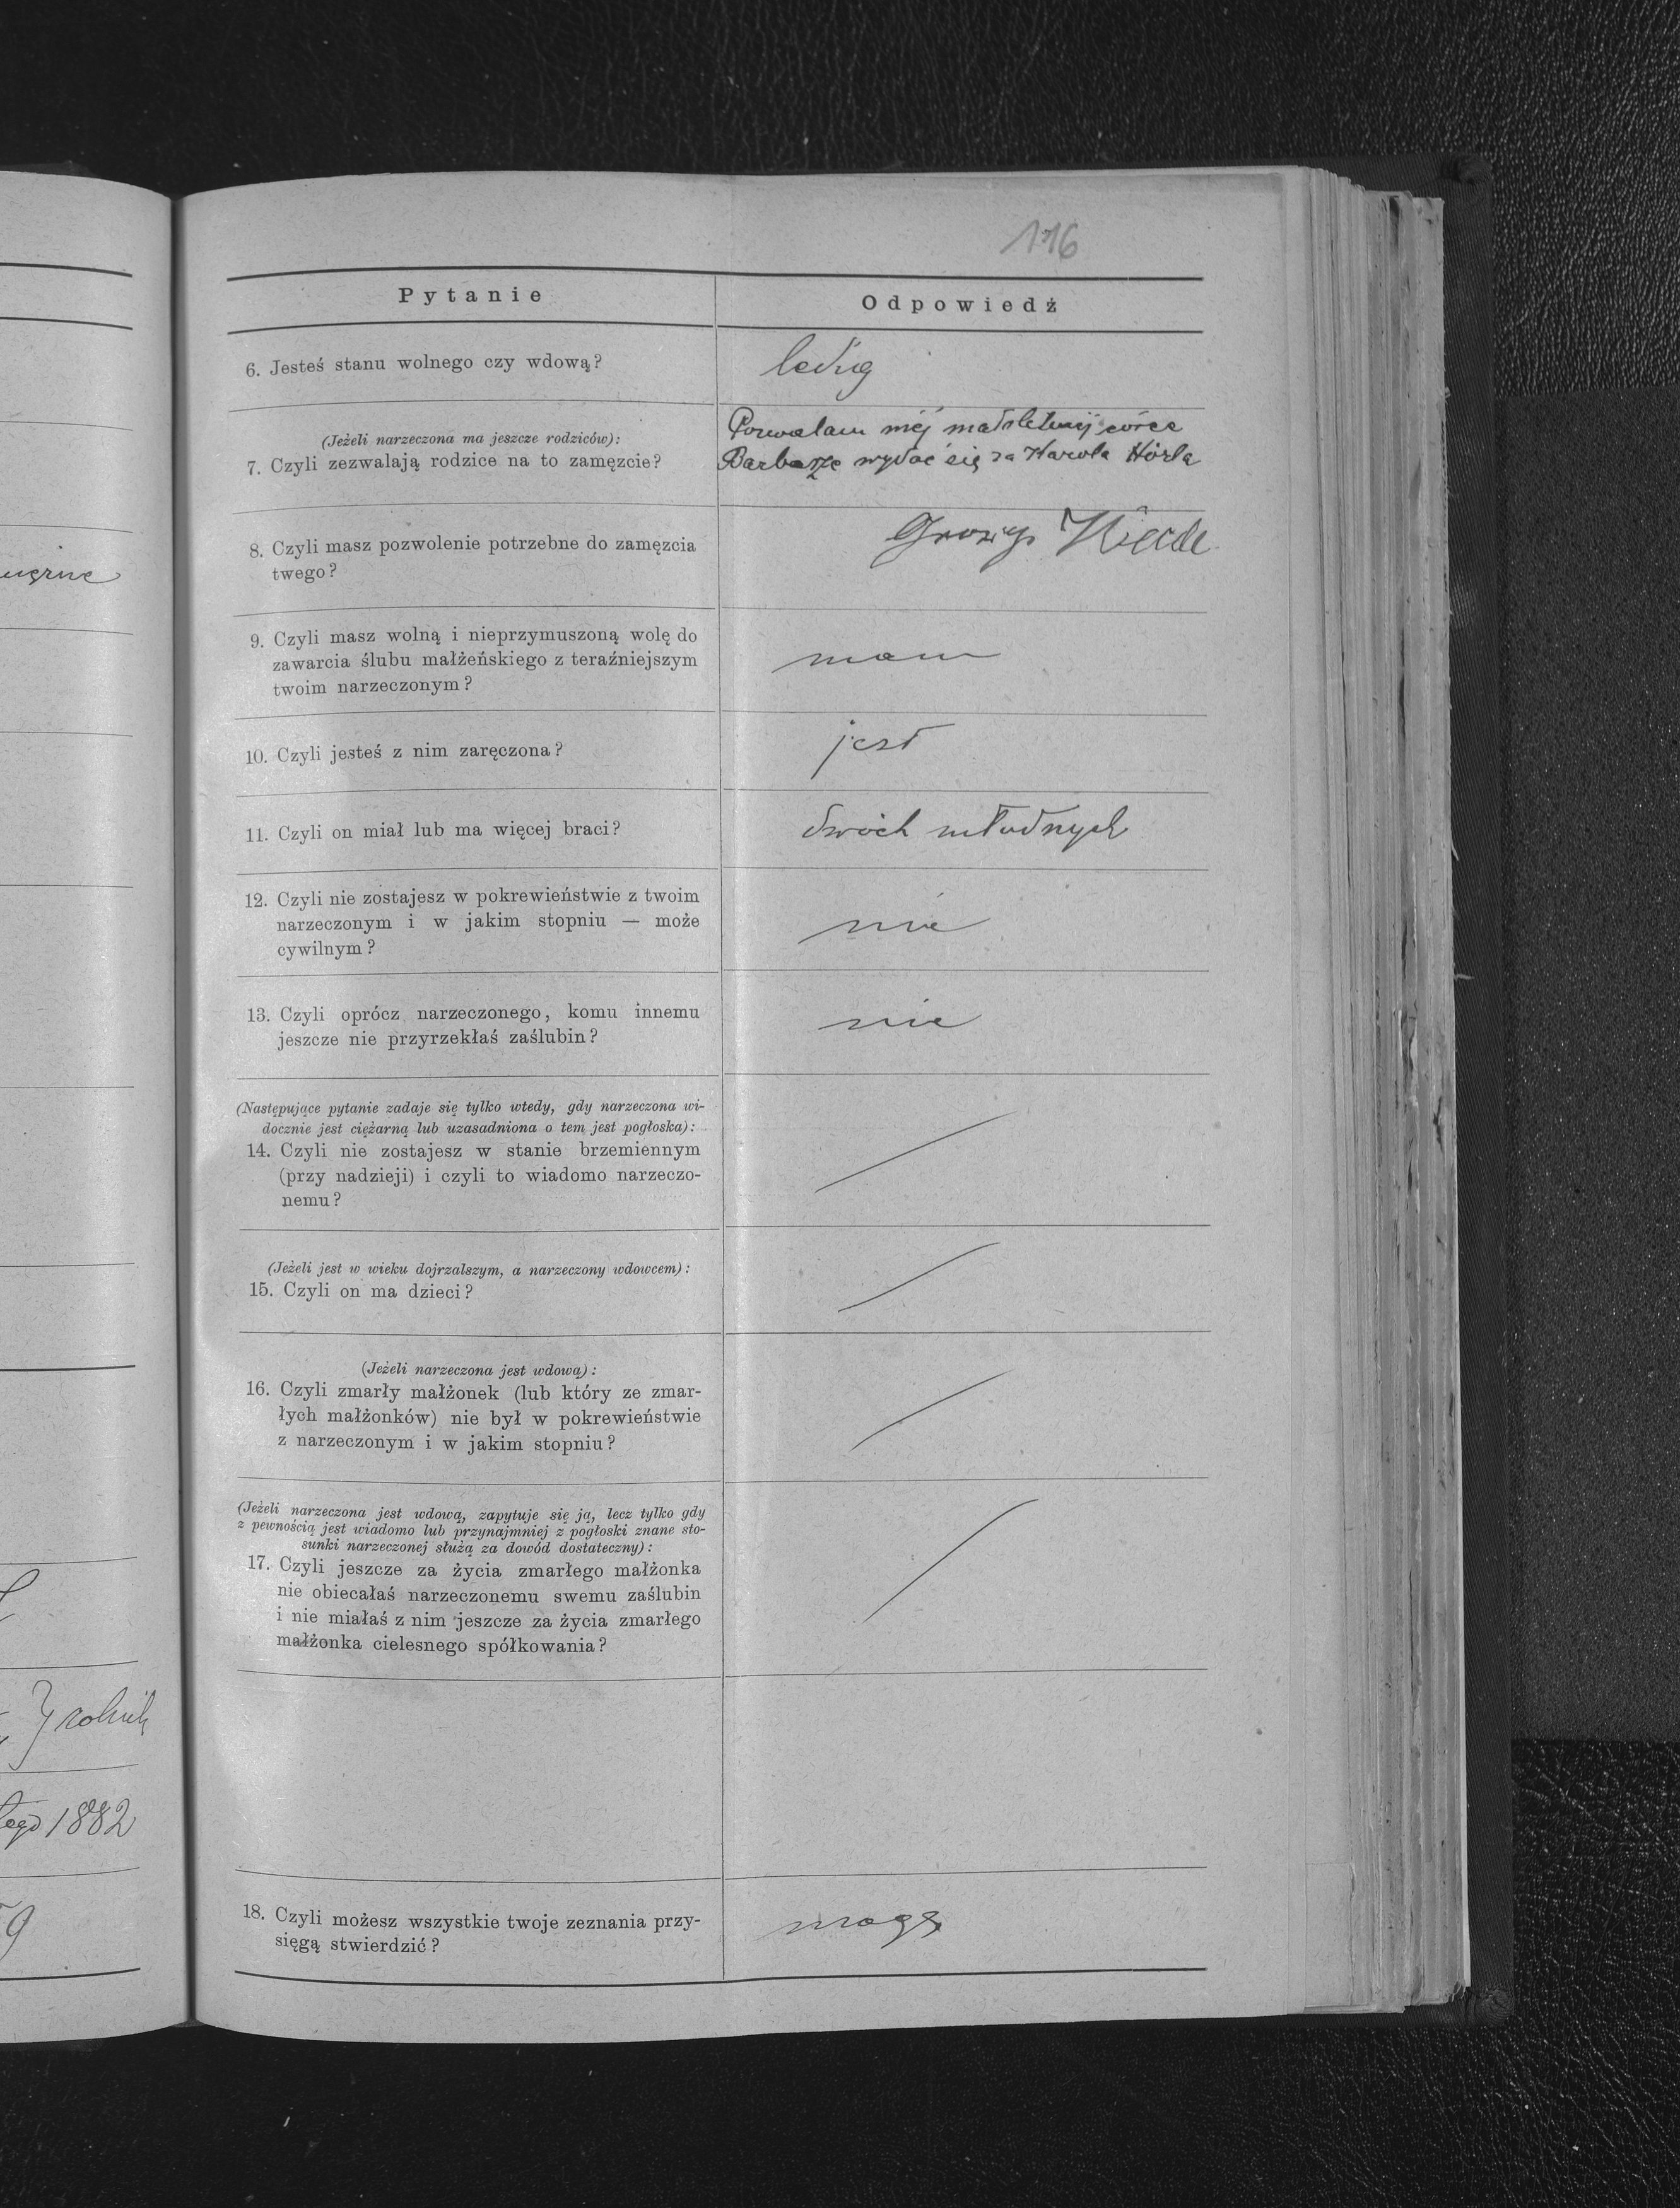 116
Pytanie
Odpowiedź
6. Jesteś stanu wolnego czy wdową?
ledig
(Jeżeli narzeczona ma jeszcze rodziców):
7. Czyli zezwalają rodzice na to zamęzcie?
Pozwalam méj małoletniéj córce
Barbarze wydać się za Karola Hörla
8. Czyli masz pozwolenie potrzebne do zamęzcia
twego?
9. Czyli masz wolną i nieprzymuszoną wolę do
zawarcia ślubu małżeńskiego z teraźniejszym
twoim narzeczonym?
mam
10. Czyli jesteś z nim zaręczona?
jest
11. Czyli on miał lub ma więcej braci?
dwóch
12. Czyli nie zostajesz w pokrewieństwie z twoim
narzeczonym i w jakim stopniu — może
cywilnym?
nie
13. Czyli oprócz narzeczonego, komu innemu
jeszcze nie przyrzekłaś zaślubin?
nie
(Następujące pytanie zadaje się tylko wtedy, gdy narzeczona wi-
docznie jest ciężarną lub uzasadniona o tem jest pogłoska):
14. Czyli nie zostajesz w stanie brzemiennym
(przy nadzieji) i czyli to wiadomo narzeczo-
nemu?
(Jeżeli jest w wieku dojrzalszym, a narzeczony wdowcem):
15. Czyli on ma dzieci?
(Jeżeli narzeczona jest wdową):
16. Czyli zmarły małżonek (lub który ze zmar-
łych małżonków) nie był w pokrewieństwie
z narzeczonym i w jakim stopniu?
(Jeżeli narzeczona jest wdową, zapytuje się ją, lecz tylko gdy
z pewnością jest wiadomo lub przynajmniej z pogłoski znane sto-
sunki narzeczonej służą za dowód dostateczny):
17. Czyli jeszcze za życia zmarłego małżonka
nie obiecałaś narzeczonemu swemu zaślubin
i nie miałaś z nim jeszcze za życia zmarłego
małżonka cielesnego spółkowania?
1882
18. Czyli możesz wszystkie twoje zeznania przy-
sięgą stwierdzić?
mogę
9